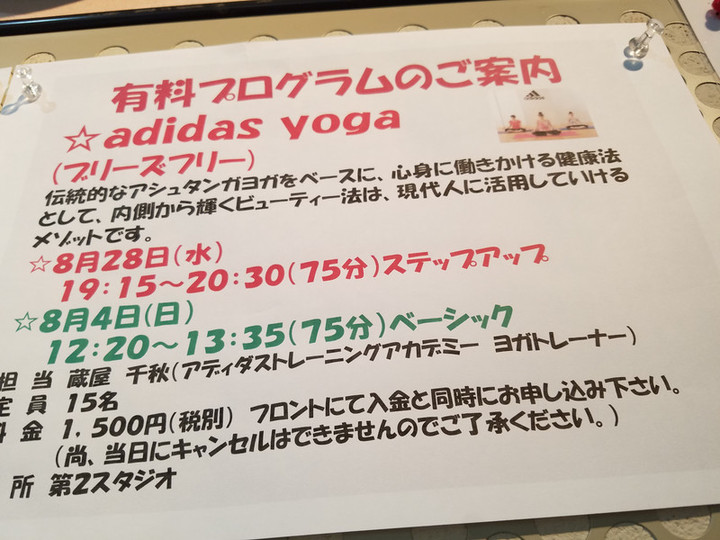 有料プログラムのご案内
☆adidas yoga
(ブリーズフリー)
伝統的なアシュタンガヨガをベースに、心身に働きかける健康法
として、内側から輝くビューティー法は、現代人に活用していける
メゾットです。
☆8月28日(水)
19:15~20:30(75分)ステップアップ
☆8月4日(日)
12:20~13:35(75分)ベーシック
担 当 蔵屋 千秋(アディダストレーニングアカデミー ヨガトレーナー)
定 員 15名
料 金 1,500円(税別) フロントにて入金と同時にお申し込み下さい。
(尚、当日にキャンセルはできませんのでご了承ください。)
所 第2スタジオ